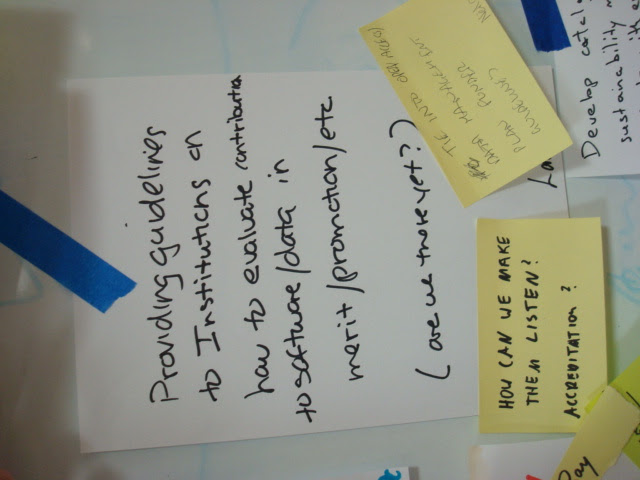 Providing guidelines
to Institutions on
how to evaluate contribution
to software/data in
merit/promotion/etc
(are we there yet?)
TIE INTO OPEN ACCESS/
DATA MANAGEMENT
PLAN FUNDER
GUIDELINES
HOW CAN WE MAKE
THEM LISTEN?
ACCREDITATION?
La
Day
Develop catal
sustainability m